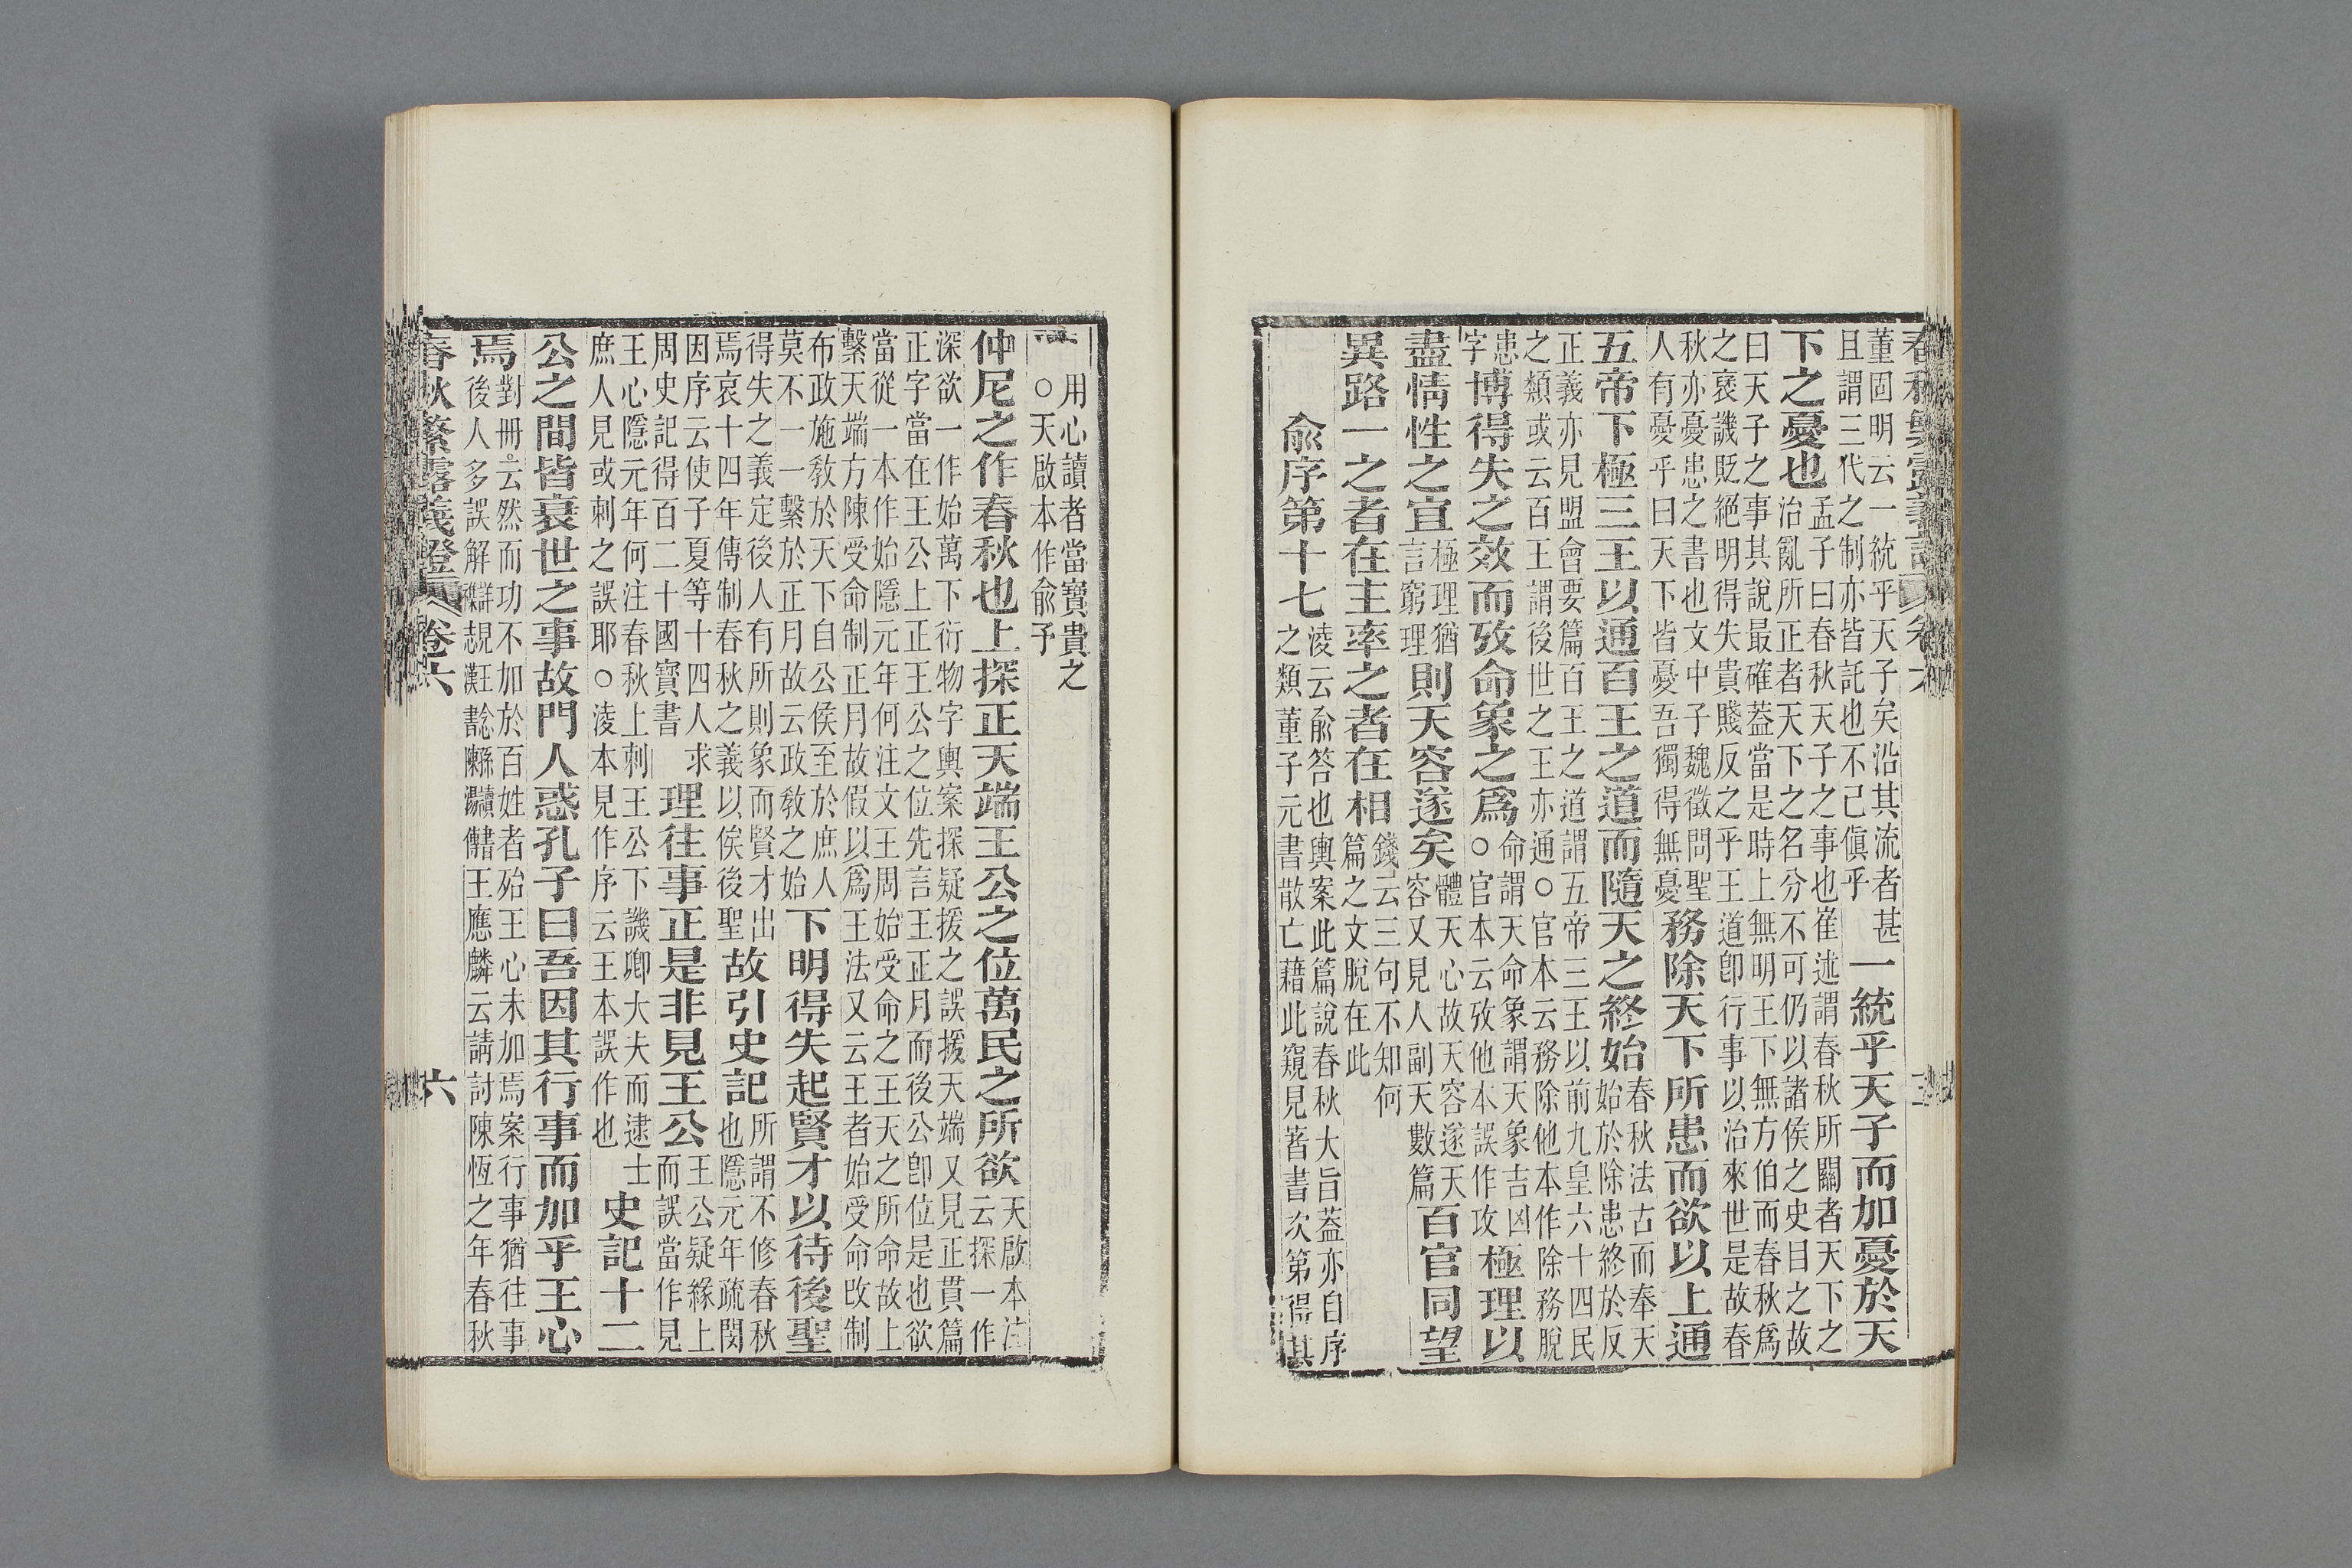 董固明云一統乎天子矣沿其流者甚
且謂三代之制亦皆託也不己傎乎
一統乎天子而加憂於天
下之憂也
孟子曰春秋天子之事也崔述謂春秋所關者天下之
治亂所正者天下之名分不可仍以諸侯之史目之故
曰天子之事其說最確蓋當是時上無明王下無方伯而春秋爲
之襃譏貶絕明得失貴賤反之乎王道卽行事以治來世是故春
秋亦憂患之書也文中子魏徵問聖
人有憂乎曰天下皆憂吾獨得無憂
務除天下所患而欲以上通
五帝下極三王以通百王之道而隨天之終始
春秋法古而奉天
始於除患終於反
正義亦見盟會要篇百王之道謂五帝三王以前九皇六十四民
之類或云百王謂後世之王亦通○官本云務除他本作除務脫
患
字
博得失之效而攷命象之爲
命謂天命象謂天象吉凶
○官本云攷他本誤作攻
極理以
盡情性之宜
極理猶
言窮理
則天容遂矣
體天心故天容遂天
容又見人副天數篇
百官同望
異路一之者在主率之者在相
錢云三句不知何
篇之文脫在此
兪序第十七
淩云兪答也輿案此篇說春秋大旨蓋亦自序
之類董子元書散亡藉此窺見著書次第得其
用心讀者當寶貴之
○天啟本作兪予
仲尼之作春秋也上探正天端王公之位萬民之所欲
天啟本注
云探一作
深欲一作始萬下衍物字輿案探疑援之誤援天端又見正貫篇
正字當在王公上正王公之位先言王正月而後公卽位是也欲
當從一本作始隱元年何注文王周始受命之王天之所命故上
繫天端方陳受命制正月故假以爲王法又云王者始受命改制
布政施敎於天下自公侯至於庶人
莫不一一繫於正月故云政敎之始
下明得失起賢才以待後聖
得失之義定後人有所則象而賢才出
焉哀十四年傳制春秋之義以俟後聖
故引史記
所謂不修春秋
也隱元年疏閔
因序云使子夏等十四人求
周史記得百二十國寶書
理往事正是非見王公
王公疑緣上
而誤當作見
王心隱元年何注春秋上刺王公下譏卿大夫而逮士
庶人見或刺之誤耶○淩本見作序云王本誤作也
史記十二
公之間皆衰世之事故門人惑孔子曰吾因其行事而加乎王心
焉
對冊云然而功不加於百姓者殆王心未加焉案行事猶往事
後人多誤解
王應麟云請討陳恆之年春秋
春秋繁露義證 卷六
六